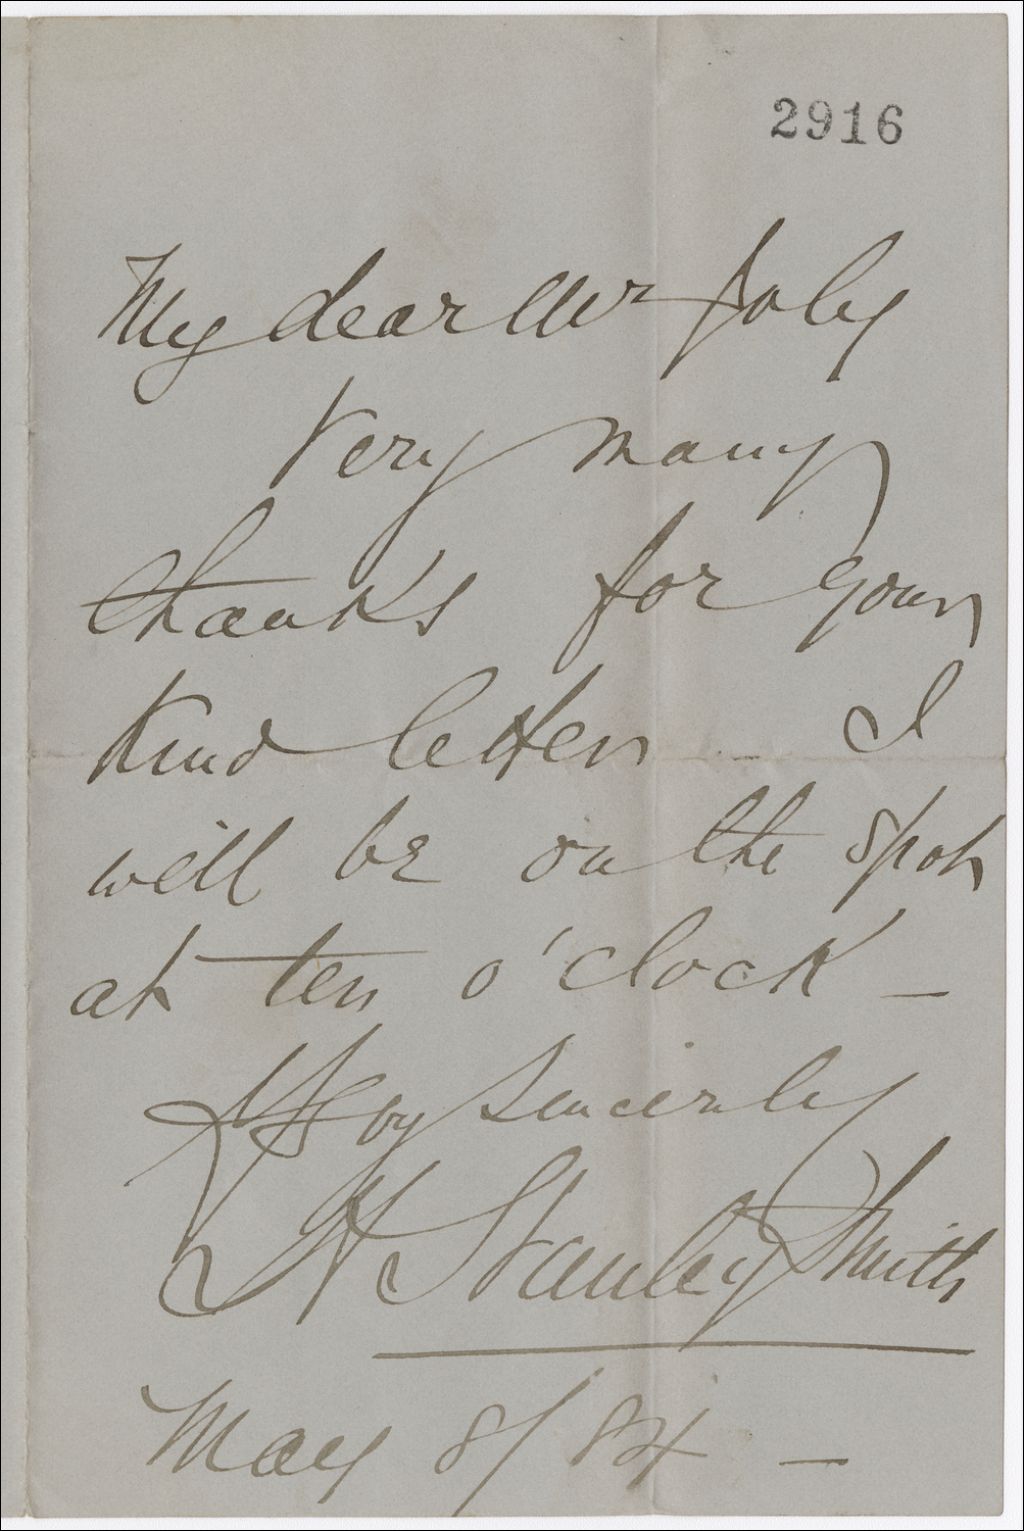 2916
My dear Mr Joly
Very many
thanks for your
kind letter - I
will be on the spot
at ten o'clock -
Very sincerely
H Stanley Smith
May 8/84 -